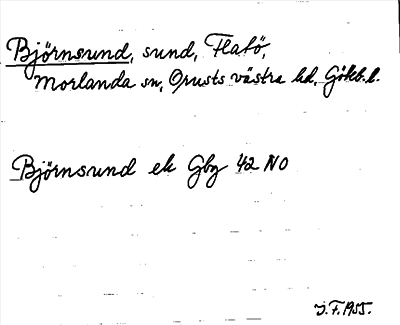 Björnsund, sund, Flatö,
Morlanda sn, Orusts västra hd, Gökb.l.
Björnsund ek Gbg 42 NO
J.F. 1955.